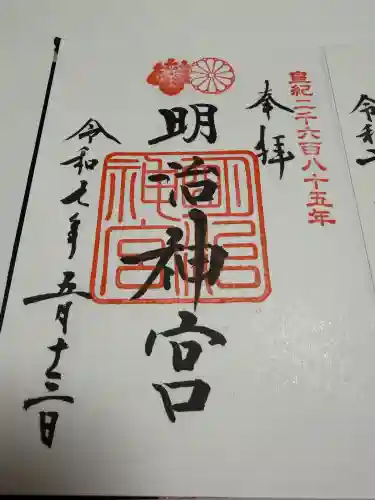 皇紀二千六百八十五年
奉拝
明治神宮
明治神宮
令和七年五月十三日
令和